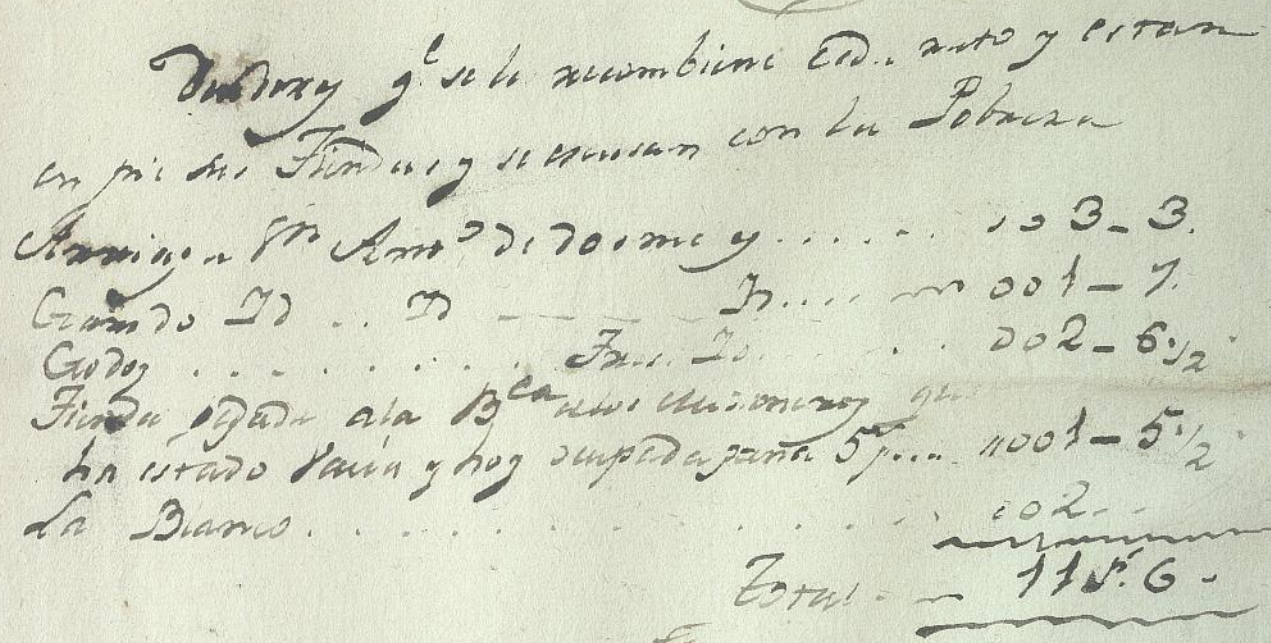 Deudores q.e se le reconbiene Cad.. rato y estan
en pie sus Tiendas y se escusan con la Pobresa
Arriaga p.r Arro de dos mes y ...... 003-3.
Garrido Id .. Id ---- Id .... 001-7.
Godoy ........ Id ...... 002-6½
Tienda pegada ala B.ca delos que
ha estado Vacia y hoy ocupada gana 5 p.... 001-5½
La Bianco ............ 002..
Total -- 11 p.s 6.